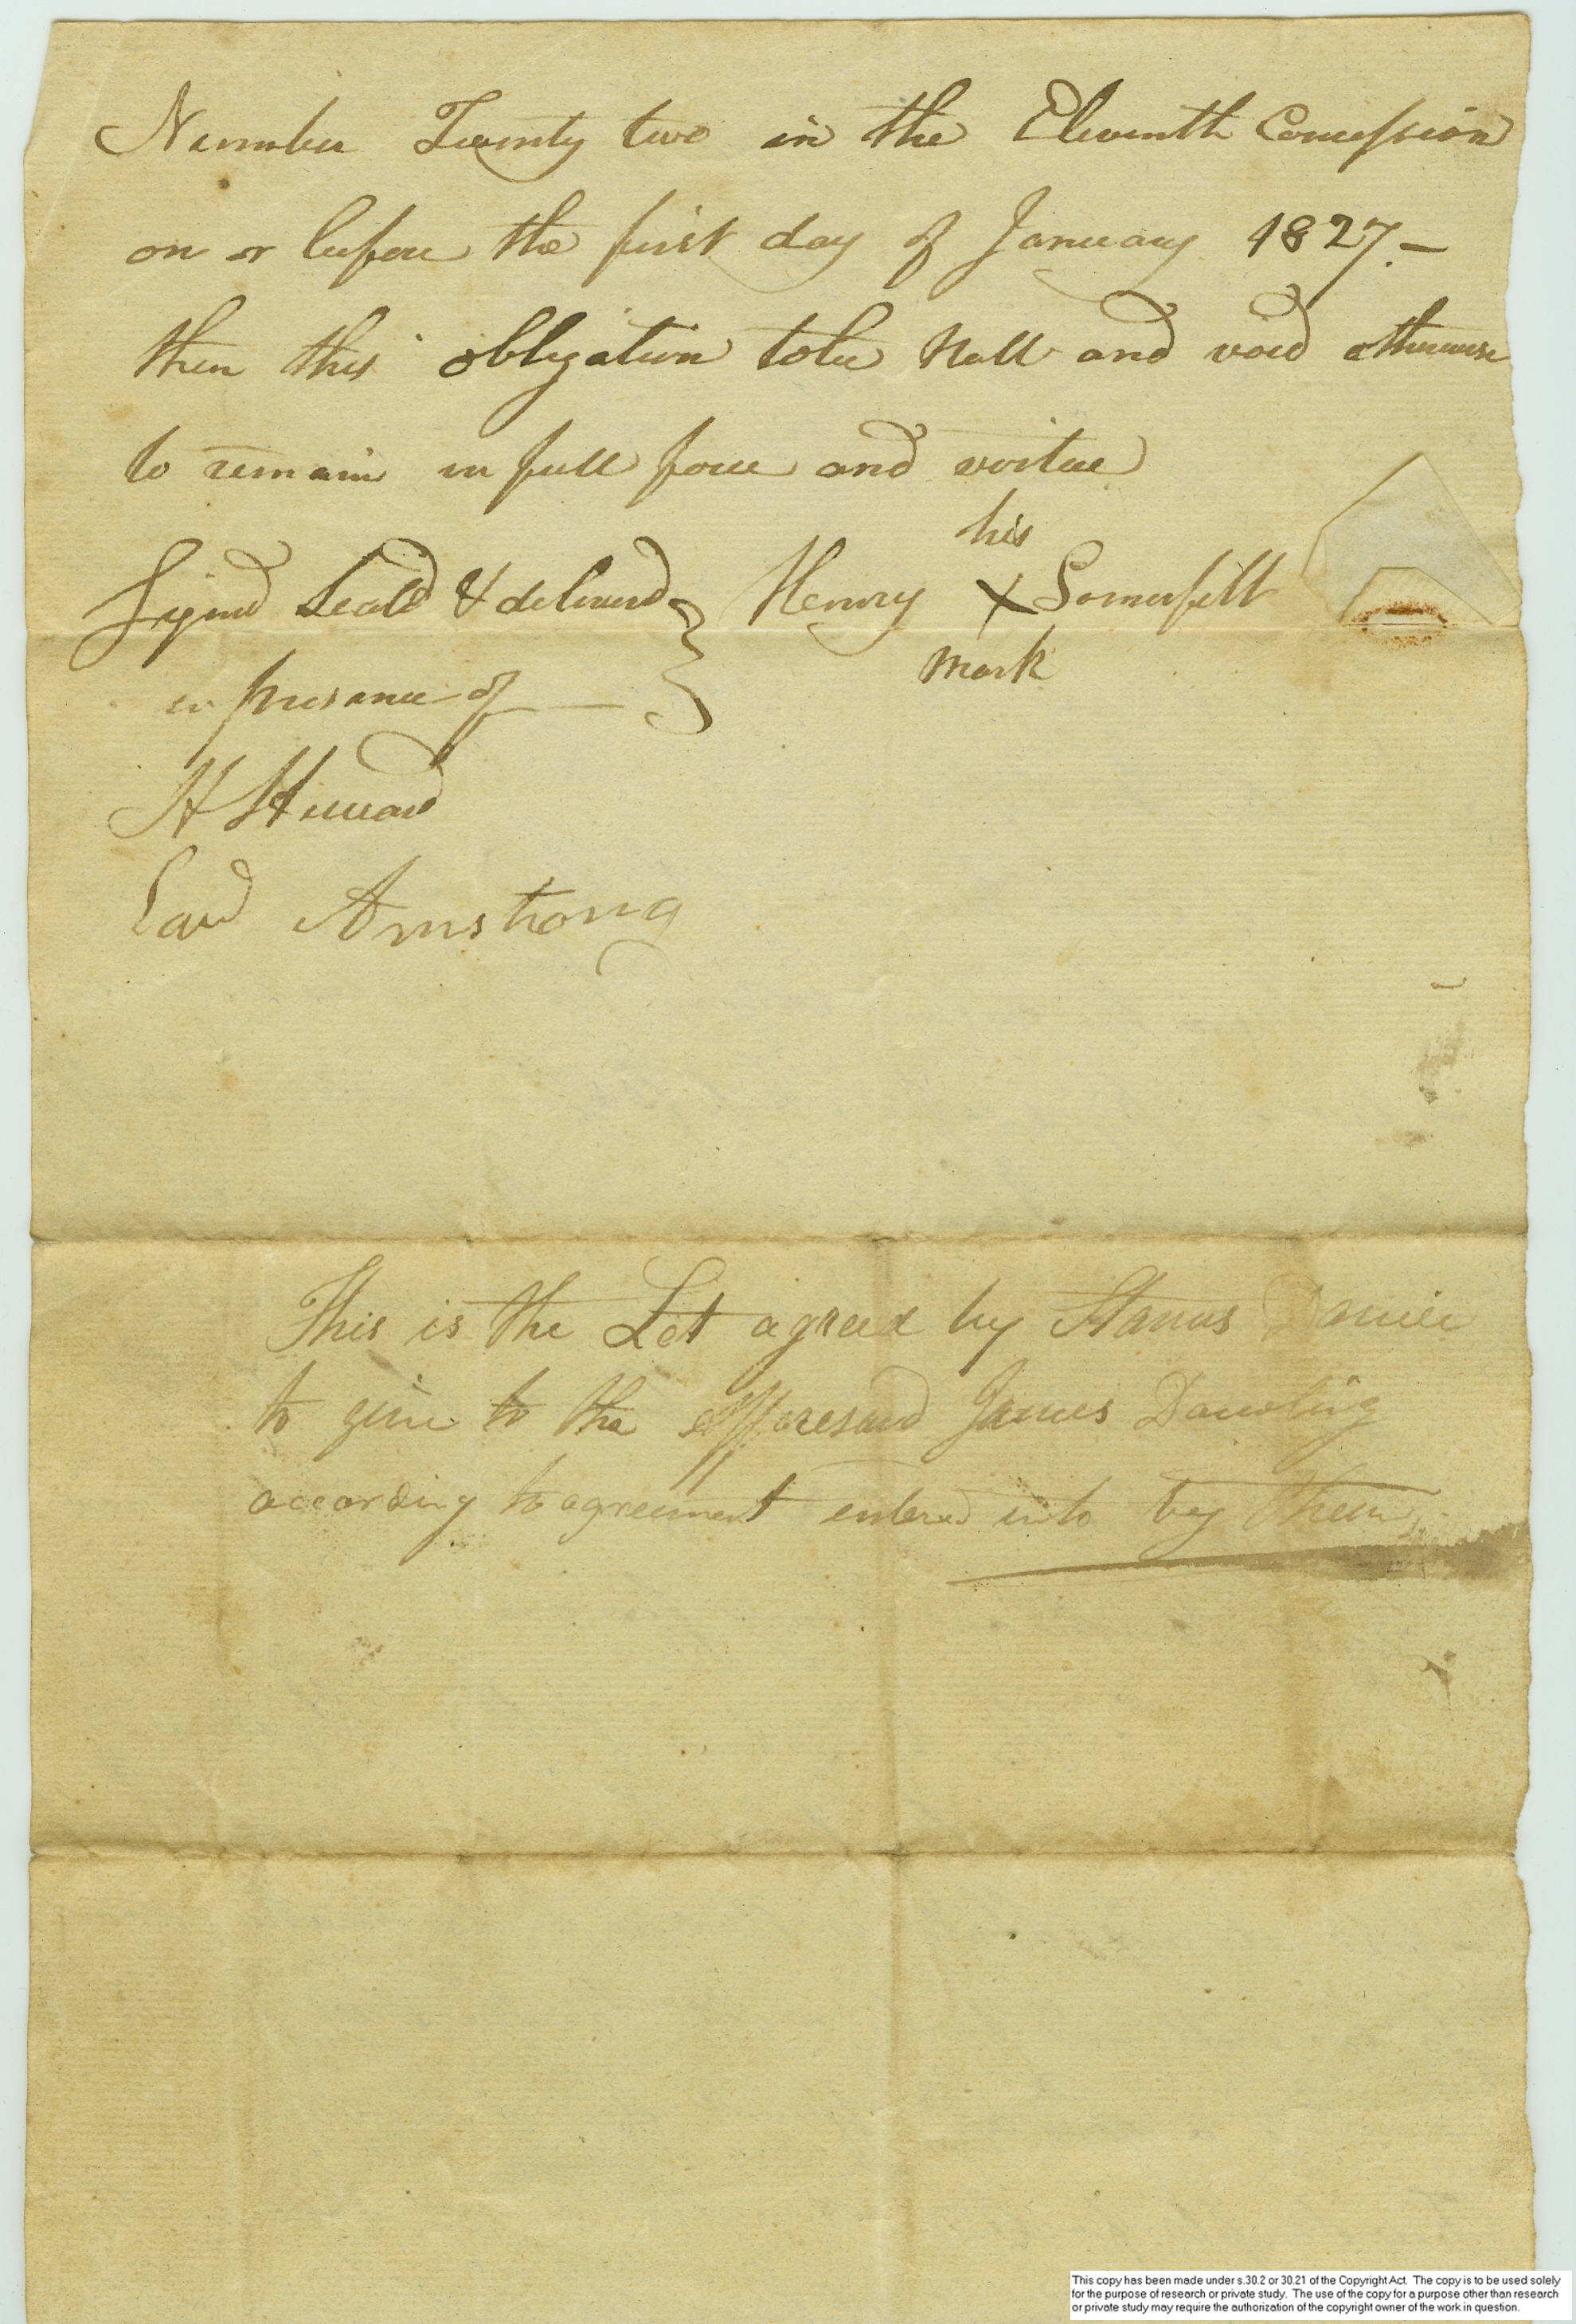 Number Twenty two in the Eleventh Concession
on or before the first day of January 1827.—
then this obligation tobe Null and void otherwise
to remain in full force and virtue
his
Signd Seald & deliverd Henry X Somerfilt
mark
in presance of
H Howard
Armstrong
This is the Lot agreed by
to give to the afforesaid James Dowling
according to agreement entered into by them
This copy has been made under s.30.2 or 30.21 of the Copyright Act. The copy is to be used solely
for the purpose of research or private study. The use of the copy for a purpose other than research
or private study may require the authorization of the copyright owner of the work in question.